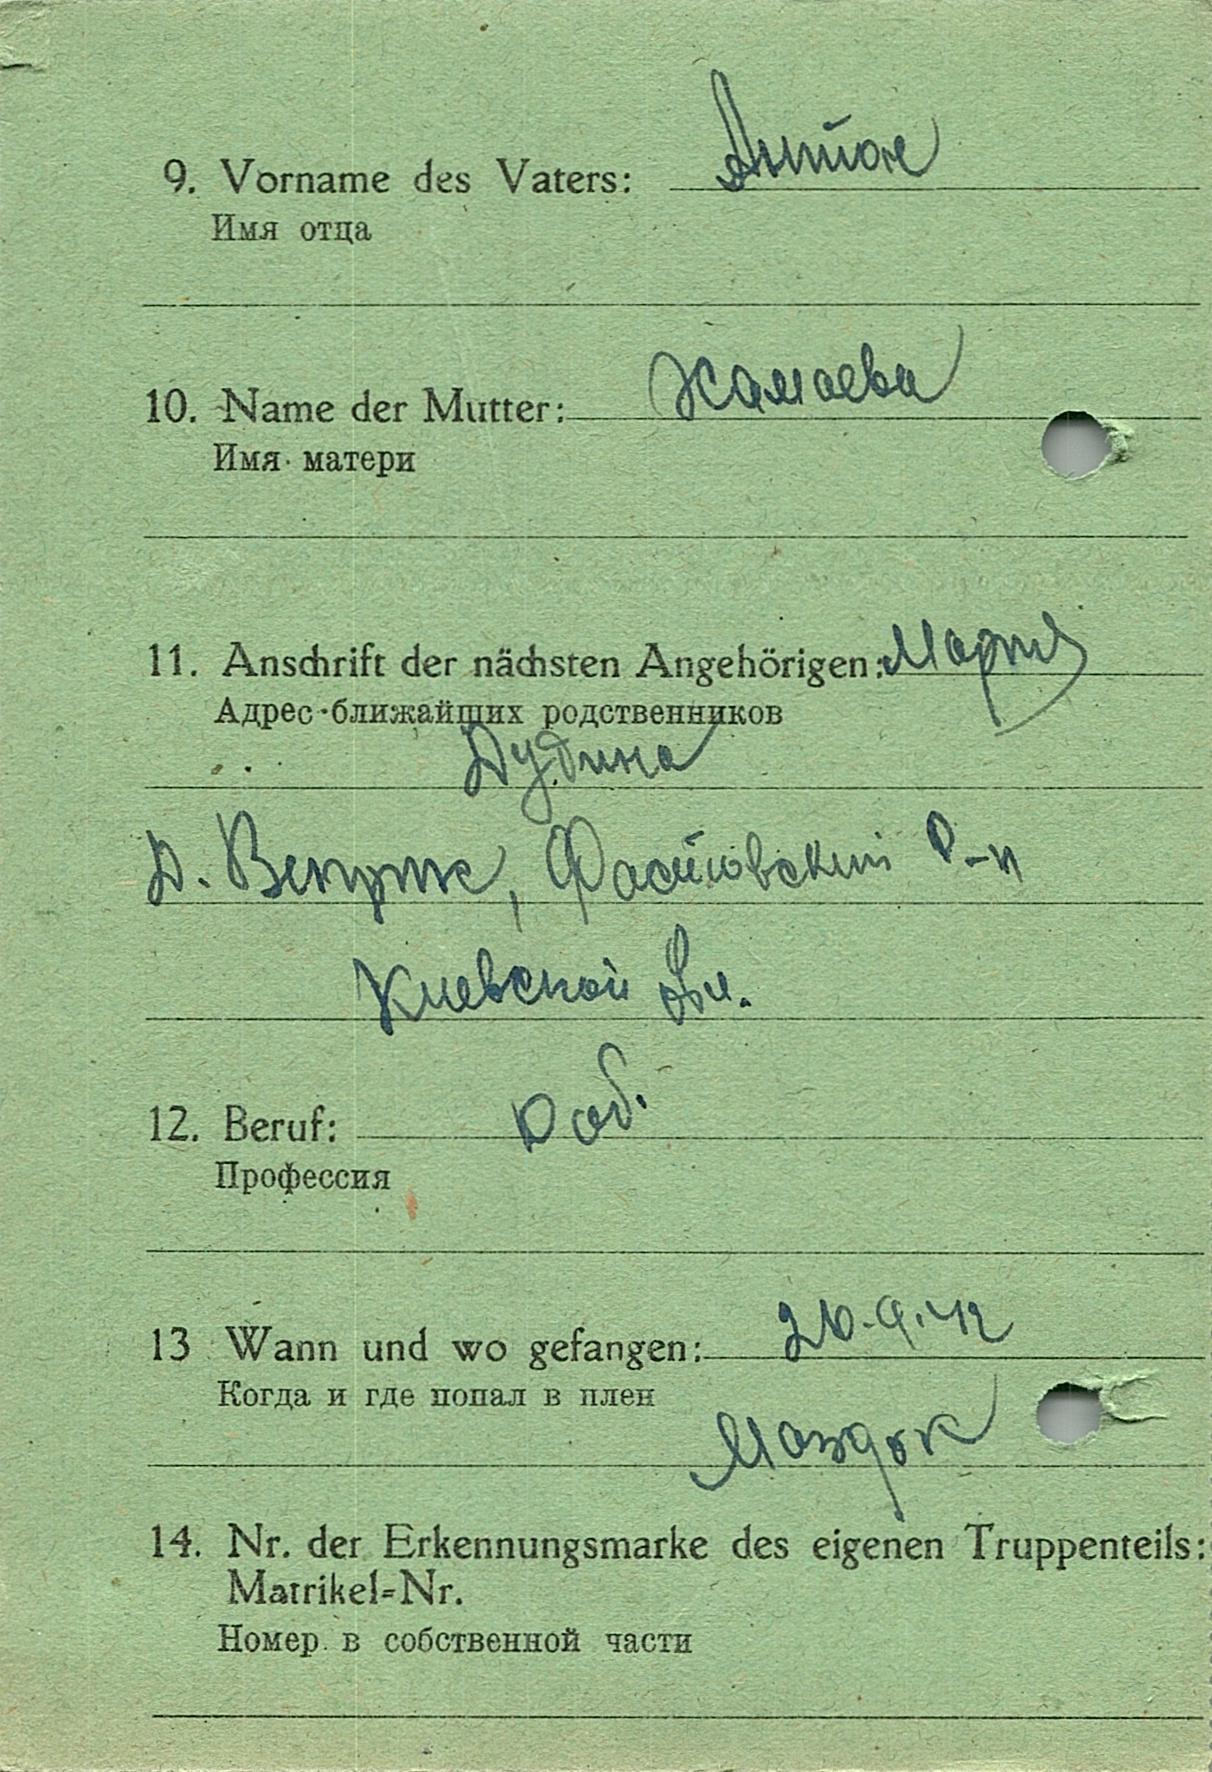 9. Vorname des Vaters: Антон
Имя отца
10. Name der Mutter: Жамаева
Имя матери
11. Anschrift der nächsten Angehörigen: Мария
Адрес ближайших родственников
Дудина
д. Веприк, Фастовский р-н
Киевской обл.
12. Beruf: раб.
Профессия
13 Wann und wo gefangen: 26.9.42
Когда и где попал в плен
Маздок
14. Nr. der Erkennungsmarke des eigenen Truppenteils:
Matrikel-Nr.
Номер в собственной части